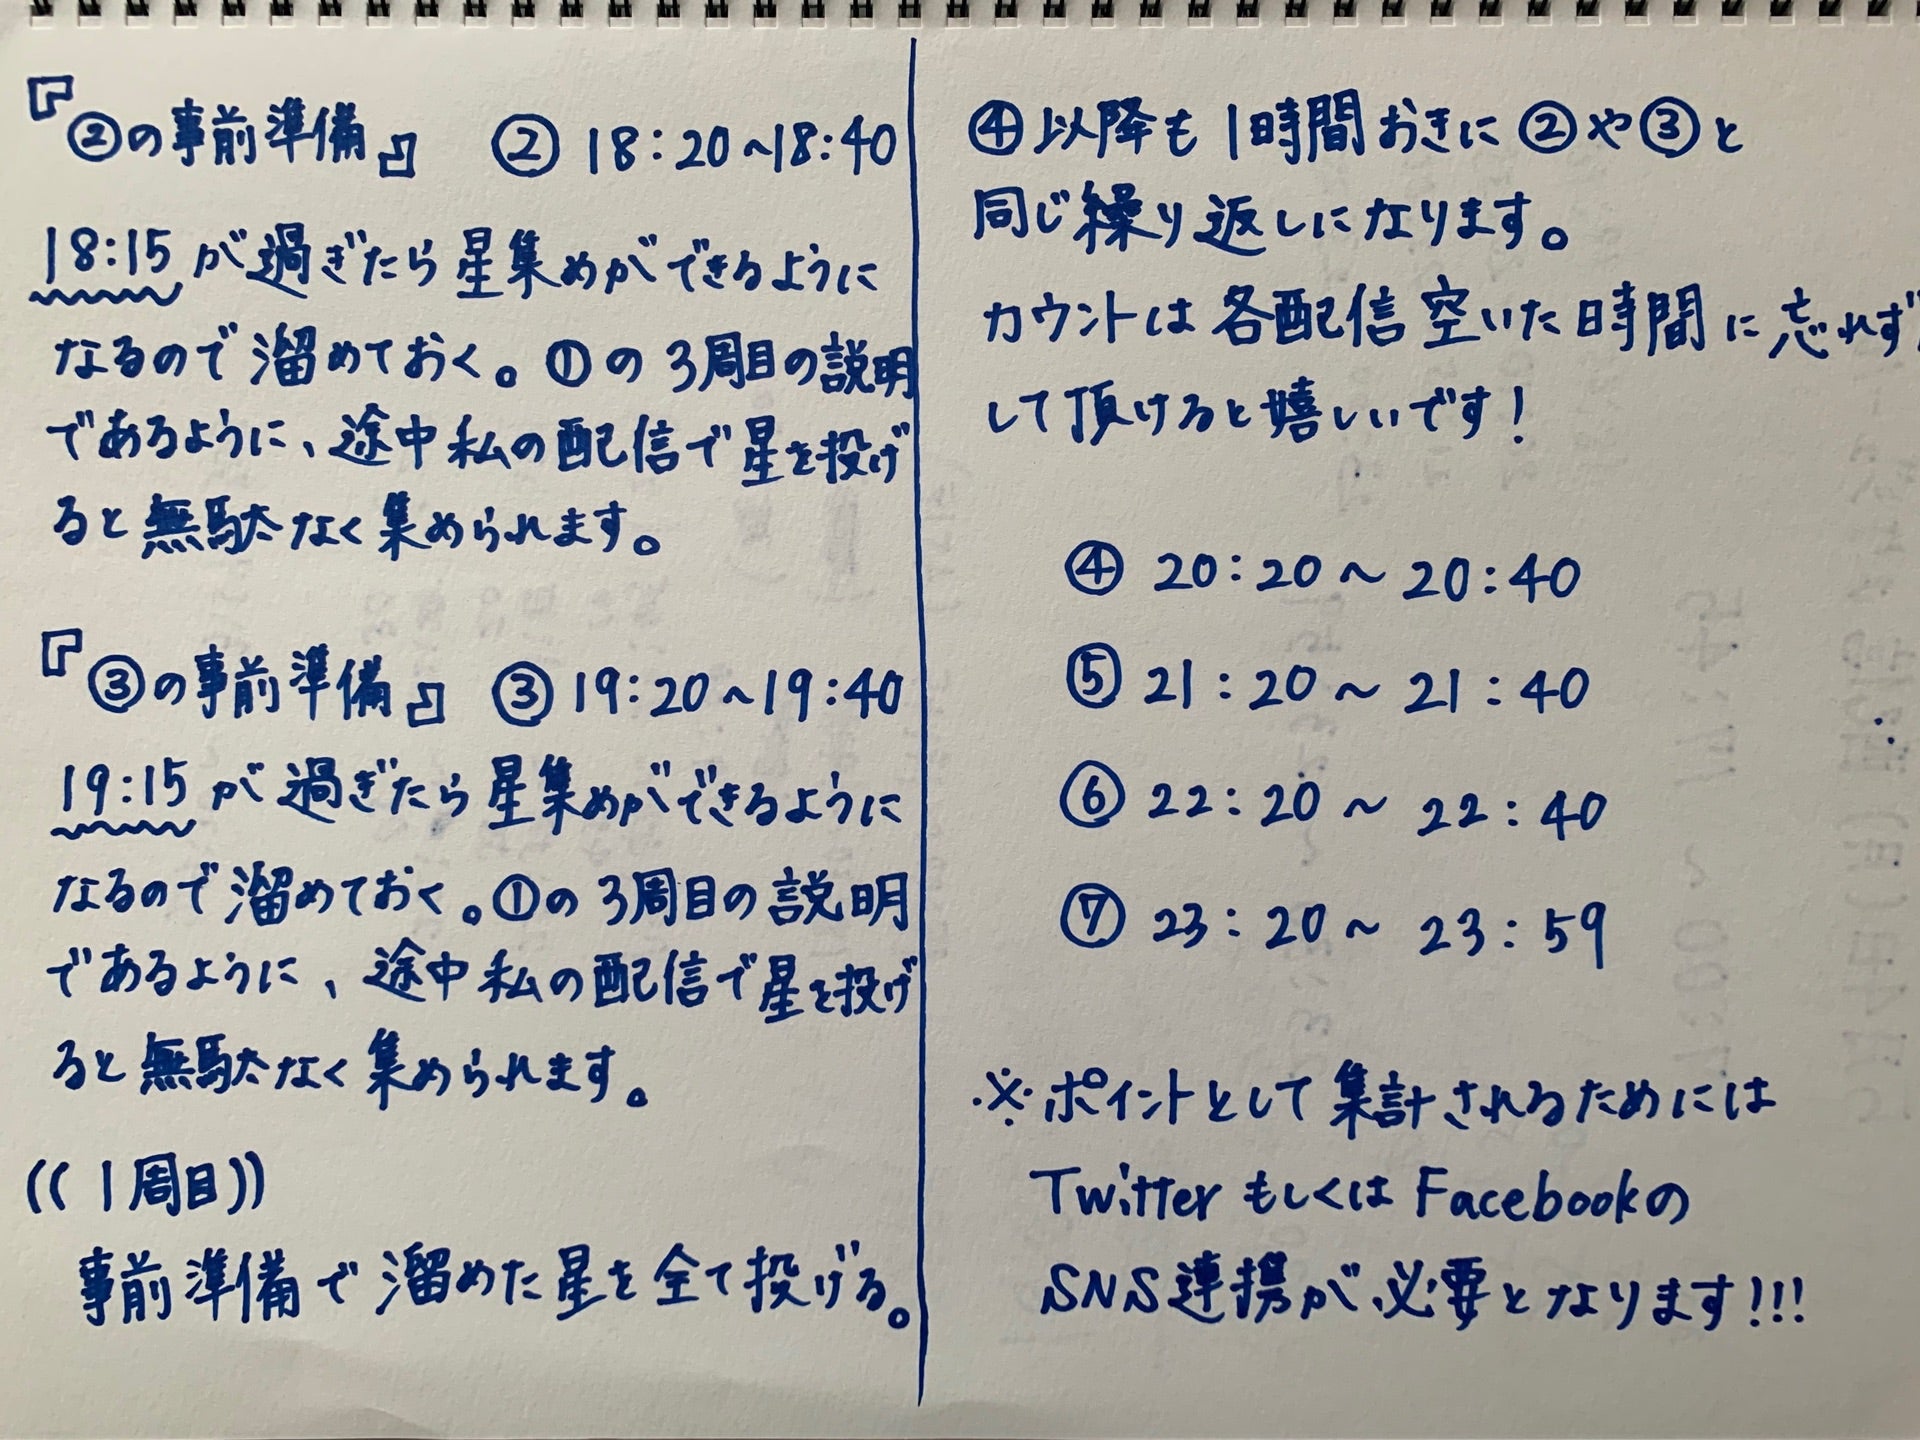 『②の事前準備』 ② 18:20~18:40
18:15 が過ぎたら星集めができるように
なるので溜めておく。①の3周目の説明
であるように、途中私の配信で星を投げ
ると無駄なく集められます。
『③の事前準備』 ③ 19:20~19:40
19:15 が過ぎたら星集めができるように
なるので溜めておく。①の3周目の説明
であるように、途中私の配信で星を投げ
ると無駄なく集められます。
((1周目))
事前準備で溜めた星を全て投げる。
④以降も1時間おきに②や③と
同じ繰り返しになります。
カウントは各配信空いた時間に忘れず
して頂けると嬉しいです!
④ 20:20~20:40
⑤ 21:20~21:40
⑥ 22:20~22:40
⑦ 23:20~23:59
※ポイントとして集計されるためには
TwitterもしくはFacebookの
SNS連携が必要となります!!!